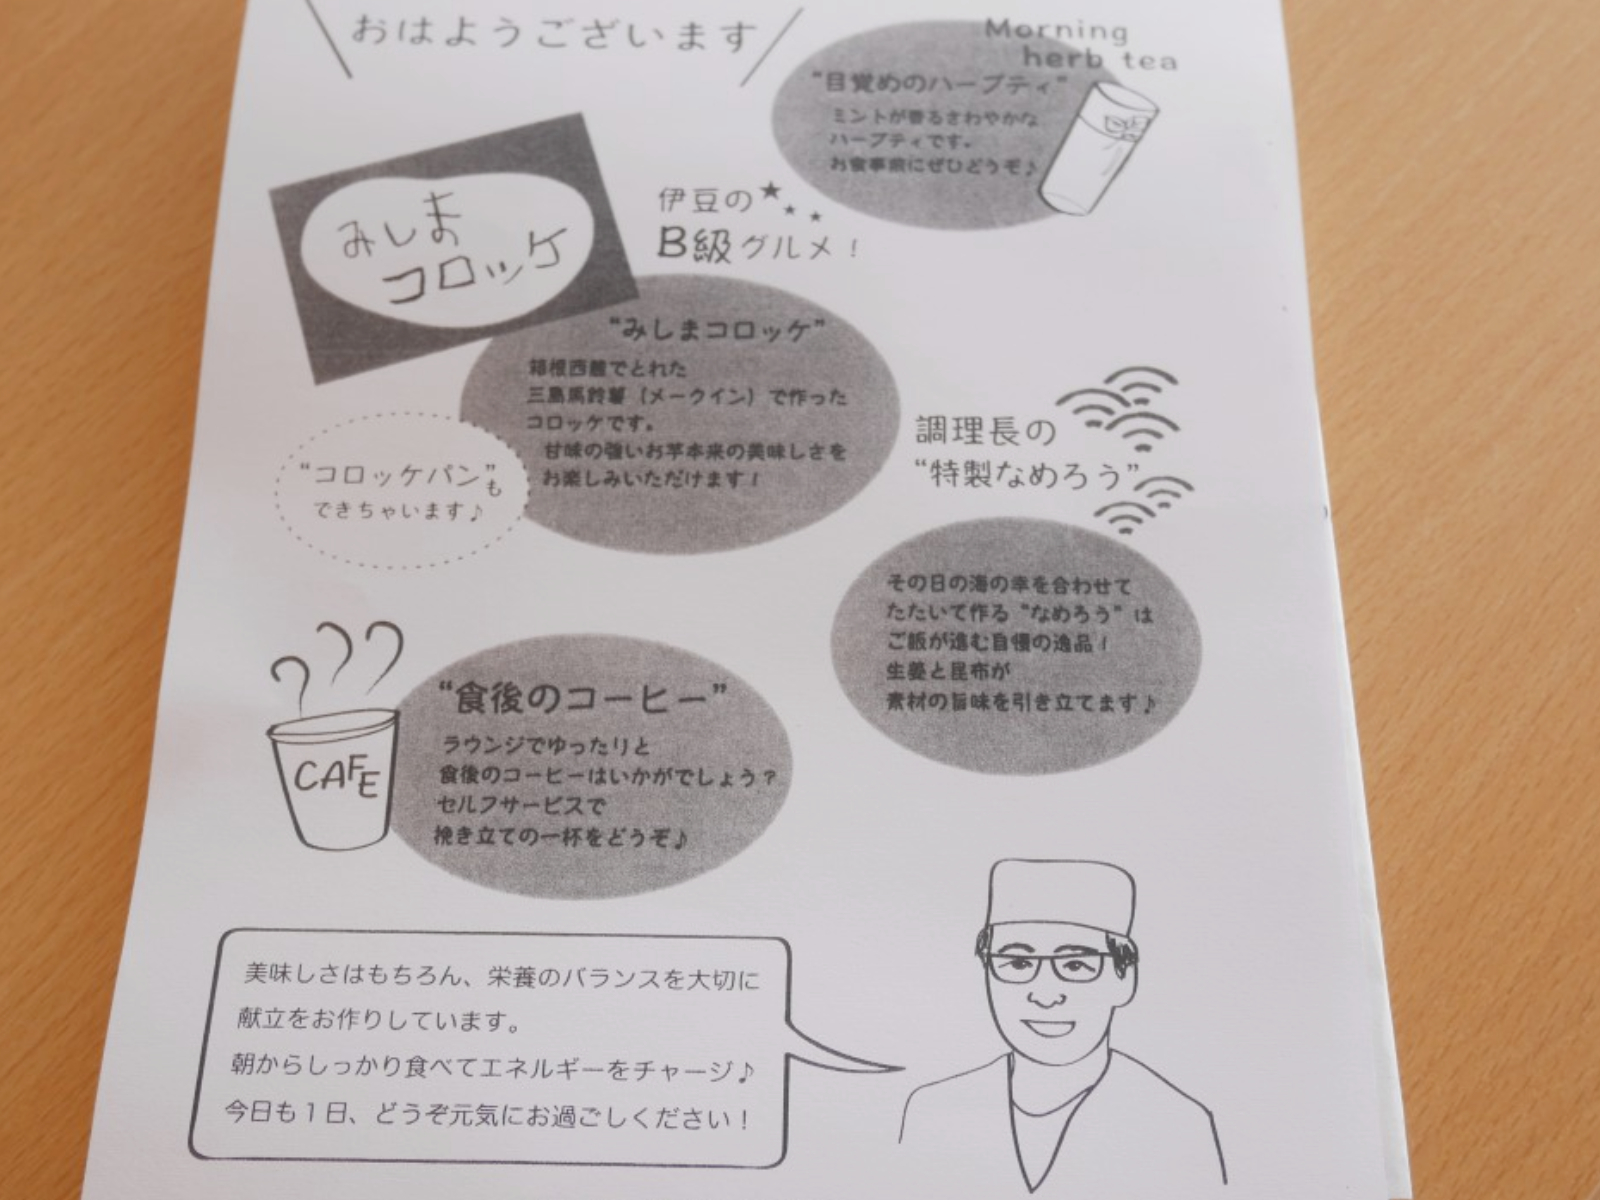 おはようございます
Morning
herb tea
“目覚めのハーブティ”
ミントが香るさわやかな
ハーブティです。
お食事前にぜひどうぞ♪
みしま
コロッケ
伊豆の★★★
B級グルメ！
“みしまコロッケ”
箱根西麓でとれた
三島馬鈴薯（メークイン）で作った
コロッケです。
甘味の強いお芋本来の美味しさを
お楽しみいただけます！
“コロッケパン”も
できちゃいます♪
調理長の
“特製なめろう”
その日の海の幸を合わせて
たたいて作る“なめろう”は
ご飯が進む自慢の逸品！
生姜と昆布が
素材の旨味を引き立てます♪
CAFE
“食後のコーヒー”
ラウンジでゆったりと
食後のコーヒーはいかがでしょう？
セルフサービスで
挽き立ての一杯をどうぞ♪
美味しさはもちろん、栄養のバランスを大切に
献立をお作りしています。
朝からしっかり食べてエネルギーをチャージ♪
今日も１日、どうぞ元気にお過ごしください！